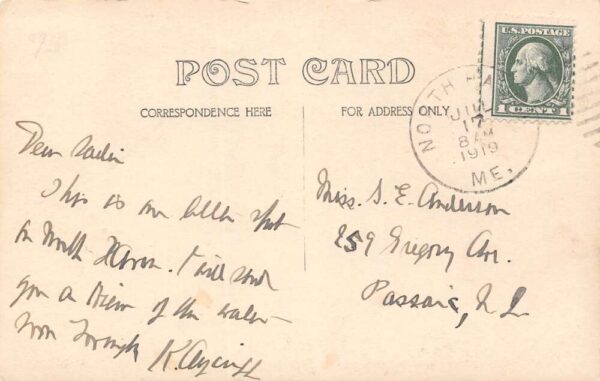 POST CARD
CORRESPONDENCE HERE
FOR ADDRESS ONLY
U.S. POSTAGE
1 CENT 1
NORTH HA
JUL
17
8 AM
1919
ME.
Dear
This is an spot
on North Haven. I will send
you a View of the water
Miss. S. E. Anderson
259 Gregory Ave.
Passaic, N. J.